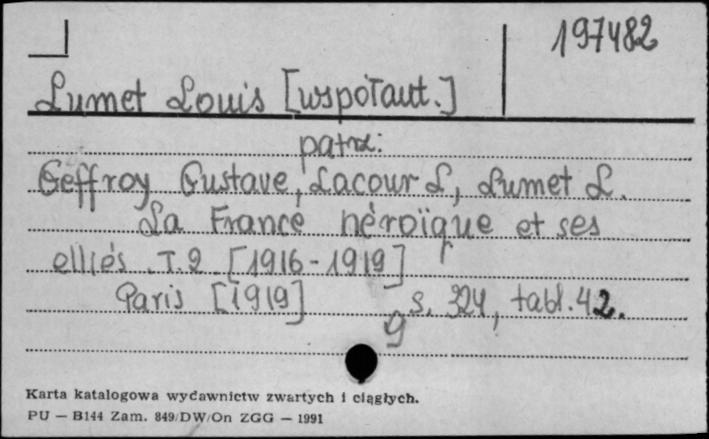 197482
Lumet Louis [współaut.]
patrz:
Geffroy Gustave, Lacour L, Lumet L.
La France héroïque et ses
elliés T. 2 [1916-1919]
Paris [1919] s. 324, tabl. 42.
g
Karta katalogowa wydawnictw zwartych i ciągłych.
PU — B144 Zam. 849/DW/On ZGG — 1991